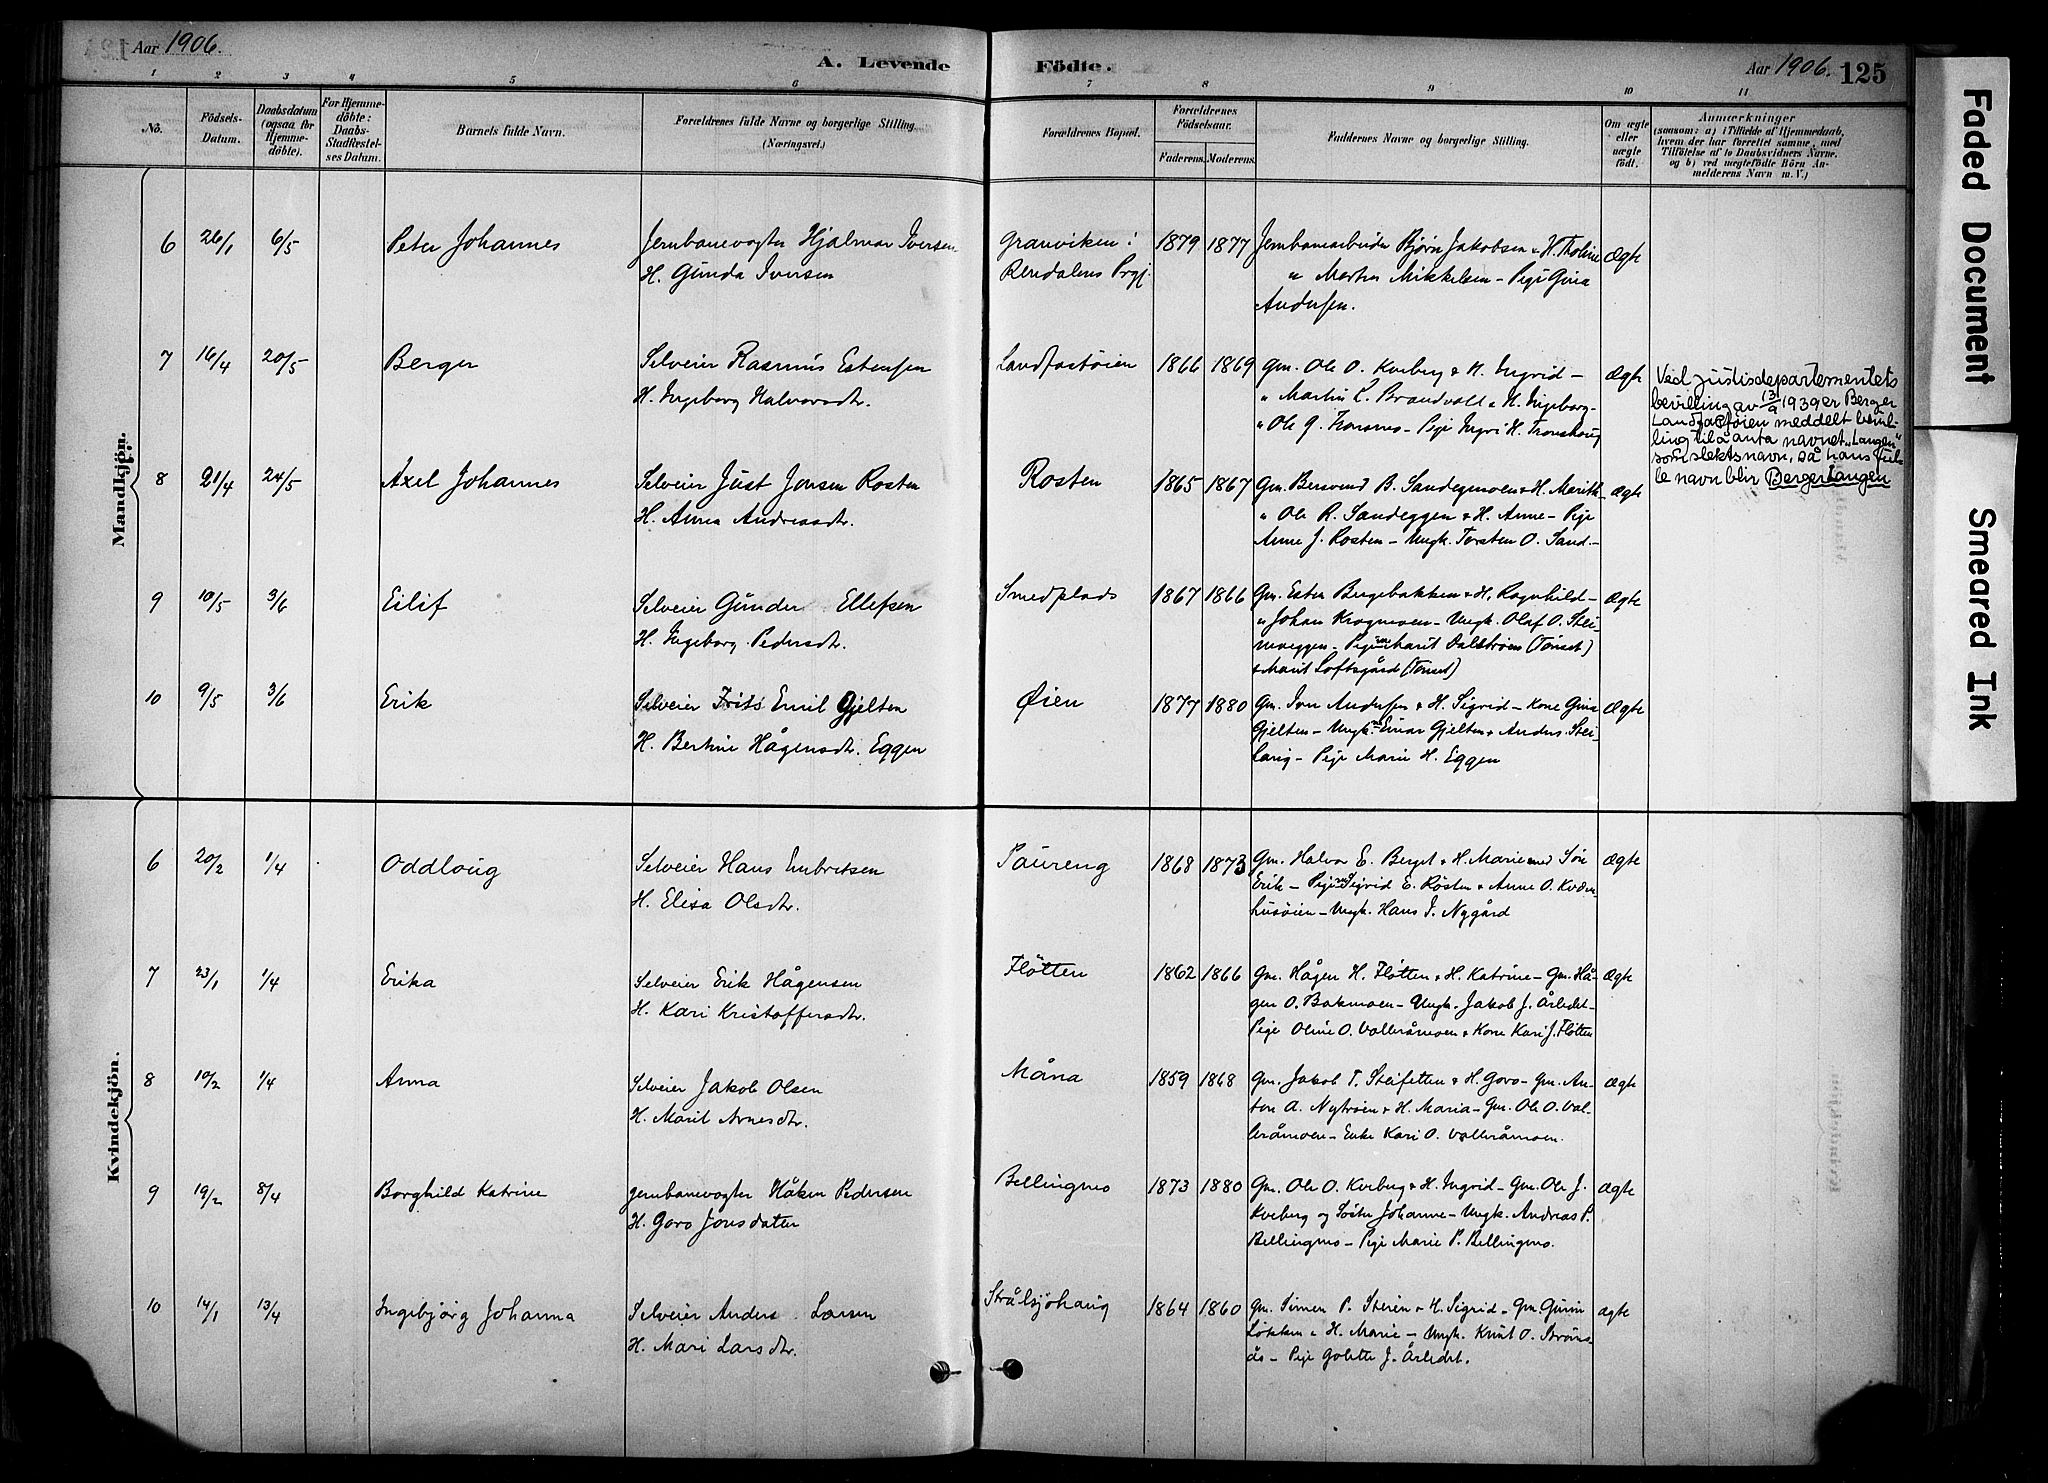 Aar 1906.
A. Levende Födte.
Aar 1906. 125
1 2 3 4 5 6 7 8 9 10 11
No.
Födsels-
Datum.
Daabsdatum
(ogsaa for
Hjemme-
döbte).
For Hjemme-
döbte:
Daabs-
Stadfæstel-
ses Datum.
Barnets fulde Navn.
Forældrenes fulde Navne og borgerlige Stilling.
(Næringsvei.)
Forældrenes Bopæl.
Forældrenes
Födselsaar.
Faderens. Moderens.
Faddernes Navne og borgerlige Stilling.
Om ægte
eller
uægte
födt.
Anmærkninger
(saasom: a) i Tilfælde af Hjemmedaab,
hvem der har forrettet samme, med
Tilföielse af to Daabsvidners Navne.
og b) ved uegtefödte Börn An-
melderens Navn m. V.)
Mandkjön.
6 26/1 6/5 Peter Johannes
Jernbanevogter Hjalmar Iversen
H. Gunda Iversen
Granviken i
Rendalens Prgj.
1879 1877
Jernbanearbeider Bjørn Jakobsen & H. Tholine
" Martin Mikkelsen – Pige Gina
Andersen.
Ægte
7 16/4 20/5 Berger
Selveier Rasmus Estensen
H. Ingeborg Halvorsdtr.
Landfastøien
1866 1869
Gm. Ole O. Kveberg & H. Ingrid –
" Martin L. Brandvoll & H. Ingeborg –
" Ole G. – Pige Ingri H. Tronshaug
Ægte
Ved justisdepartementets
bevilling av 13/9 1939 er Berger
Landfastøien meddelt bevil-
ling til å anta navnet "Langen"
som slektsnavn, så hans ful-
le navn blir Berger Langen
8 21/4 24/5 Axel Johannes
Selveier Just Jonsen Rosten
H. Anna Andreasdtr.
Rosten
1865 1867
Gm. Bersvend B. Sandegmoen & H. Marith –
" Ole R. Sandeggen & H. Anne – Pige
Anne J. Rosten – Ungk. Torsten O. Sand–
Ægte
9 10/5 3/6 Eilif
Selveier Gunder Ellefsen
H. Ingeborg Pedersdtr.
Smedplads
1867 1866
Gm. Esten Bergebakken & H. Ragnhild –
" Johan Krogmoen – Ungk. Olaf O. Stei-
moeggen – Pigerne Marit Dalstrøm (Tønset)
& Marit Loftsgård (Tønset)
Ægte
10 9/5 3/6 Erik
Selveier Frits Emil Gjelten
H. Bertine Hågensdtr. Eggen
Øien
1877 1880
Gm. Ivar Andersen & H. Sigrid – Kone Gina
Gjelten – Ungk. Einar Gjelten & Anders Stei-
– Pige Marie H. Eggen
Ægte
Kvindekjön.
6 20/2 1/4 Oddlaug
Selveier Hans Embretsen
H. Elisa Olsdtr.
Paureng
1868 1873
Gm. Halvor E. Berget & H. Marie med Søn
Erik – Pigerne Sigrid E. Rösten & Anne O. Kværn-
husøien – Ungk. Hans I. Nygård
Ægte
7 23/1 1/4 Erika
Selveier Erik Hågensen
H. Kari Kristoffersdtr.
Fløtten
1862 1866
Gm. Hågen H. Fløtten & H. Katrine – Gm. Hå-
gen O. Bakmoen – Ungk. Jakob J. Årledet –
Pige Oline O. Valleråmoen & Kone Kari J. Fløtten
Ægte
8 10/2 1/4 Anna
Selveier Jakob Olsen
H. Marit Arnesdtr.
Måna
1859 1868
Gm. Jakob T. Steifetten & H. Goro – Gm. An-
ton A. Nytrøen & H. Maria – Gm. Ole O. Val-
leråmoen – Enke Kari O. Valleråmoen.
Ægte
9 19/2 8/4 Borghild Katrine
Jernbanevogter Håken Pedersen
H. Goro Jonsdatter
Bellingmo
1873 1880
Gm. Ole O. Kveberg & H. Ingrid – Gm. Ole J.
Kveberg og Søster Johanne – Ungk. Andreas P.
Bellingmo – Pige Marie P. Bellingmo.
Ægte
10 14/1 13/4 Ingebjørg Johanna
Selveier Anders Larsen
H. Mari Larsdtr.
Strålsjøhaug
1864 1860
Gm. Simen P. Steien & H. Sigrid – Gm.
Løkken & H. Marie – Ungk. Knut O. Brøns-
ås – Pige Golette J. Årledet.
ægte
Faded Document
Smeared Ink